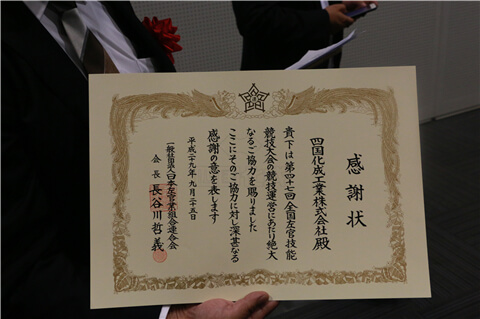 感謝状
四国化成工業株式会社殿
貴下は第四十七回全国左官技能
競技大会の競技運営にあたり絶大
なるご協力を賜りました
ここにそのご協力に対し深甚なる
感謝の意を表します
平成二十九年九月二十五日
一般社団法人日本左官業組合連合会
会長 長谷川哲義